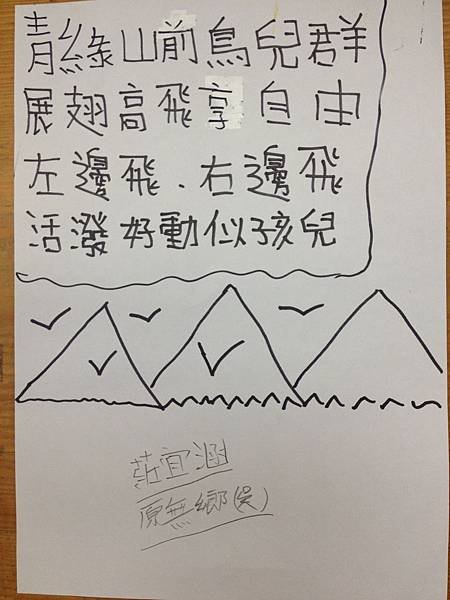 青綠山前鳥兒群
展翅高飛享自由
左邊飛.右邊飛
活潑好動似孩兒
莊宜涵
原無鄉(吳)